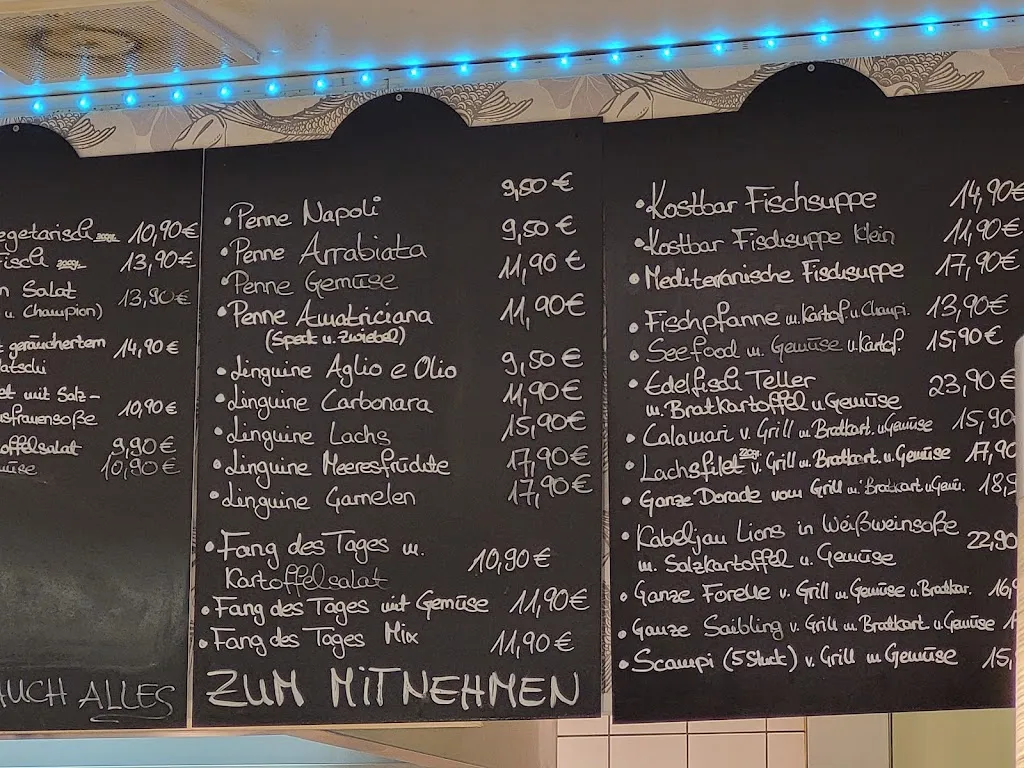 egetarisch 200gr. 10,90€
Fisch 200gr. 13,90€
n Salat 13,90€
u Champion)
geräuchertem 14,90€
atschi
et mit Salz-
usfrauensoße 10,90€
offelsalat 9,90€
müse 10,90€
AUCH ALLES
• Penne Napoli 9,50€
• Penne Arrabiata 9,50€
• Penne Gemüse 11,90€
• Penne Amatriciana 11,90€
(Speck u. Zwiebel)
• Linguine Aglio e Olio 9,50€
• Linguine Carbonara 11,90€
• Linguine Lachs 15,90€
• Linguine Meeresfrüchte 17,90€
• Linguine Garnelen 17,90€
• Fang des Tages m. 10,90€
Kartoffelsalat
• Fang des Tages mit Gemüse 11,90€
• Fang des Tages Mix 11,90€
ZUM MITNEHMEN
• Kostbar Fischsuppe 14,90€
• Kostbar Fischsuppe klein 11,90€
• Mediteranische Fischsuppe 17,90€
• Fischpfanne m. Kartof u Champi. 13,90€
• Seefood m. Gemüse u. Kartof. 15,90€
• Edelfisch Teller 23,90€
m. Bratkartoffel u Gemüse
• Calamari v. Grill m Bratkart. u Gemüse 15,90
• Lachsfilet 200gr. v. Grill m. Bratkart. u. Gemüse 17,90
• Ganze Dorade vom Grill m. Bratkart u Gemü. 18,9
• Kabeljau Lions in Weißweinsoße 22,90
m. Salzkartoffel u. Gemüse
• Ganze Forelle v. Grill m Gemüse u. Bratkar. 16,
• Ganze Saibling v. Grill m. Bratkart. u Gemüse 1
• Scampi (5 Stück) v. Grill m Gemüse 15,